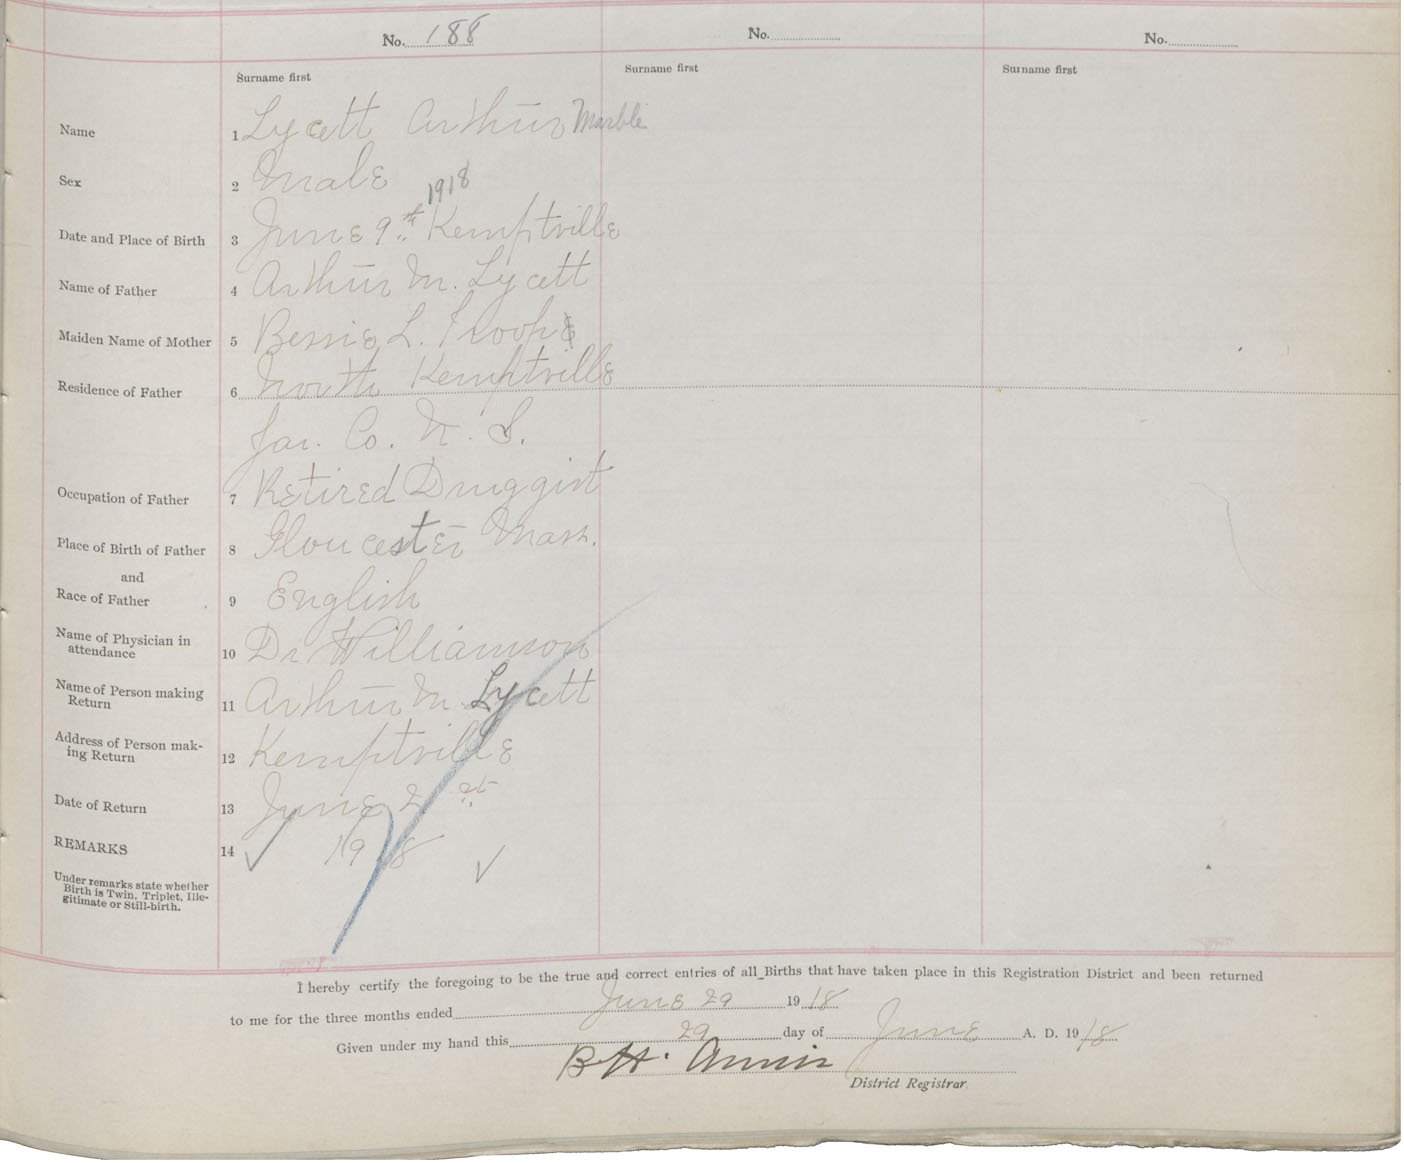 No. 188
No.
No.
Surname first
Surname first
Surname first
Name 1 Lycett Arthur Marble
Sex 2 Male
1918
Date and Place of Birth 3 June 9th Kemptville
Name of Father 4 Arthur M. Lycett
Maiden Name of Mother 5 Bessie L.
Residence of Father 6 North Kemptville
Yar. Co. N. S.
Occupation of Father 7 Retired Druggist
Place of Birth of Father 8 Gloucester Mass.
and
Race of Father 9 English
Name of Physician in
attendance 10 Dr Williamson
Name of Person making
Return 11 Arthur M Lycett
Address of Person mak-
ing Return 12 Kemptville
Date of Return 13 June 21st
REMARKS 14 1918
Under remarks state whether
Birth is Twin, Triplet, Ille-
gitimate or Still-birth.
I hereby certify the foregoing to be the true and correct entries of all Births that have taken place in this Registration District and been returned
to me for the three months ended June 29 1918
Given under my hand this 29 day of June A. D. 1918
B H. Annis
District Registrar